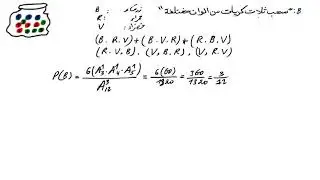 B: "سحب ثلاث كريات من ألوان مختلفة"
B : زرقاء
R : حمراء
V : خضراء
(B.R.V)+(B.V.R)+(R.B.V)
(R.V.B), (V,B,R), (V,R.V)
P(B) = 6(A¹₃·A¹₄·A¹₅) / A³₁₂ = 6(60)/1320 = 360/1320 = 3/22